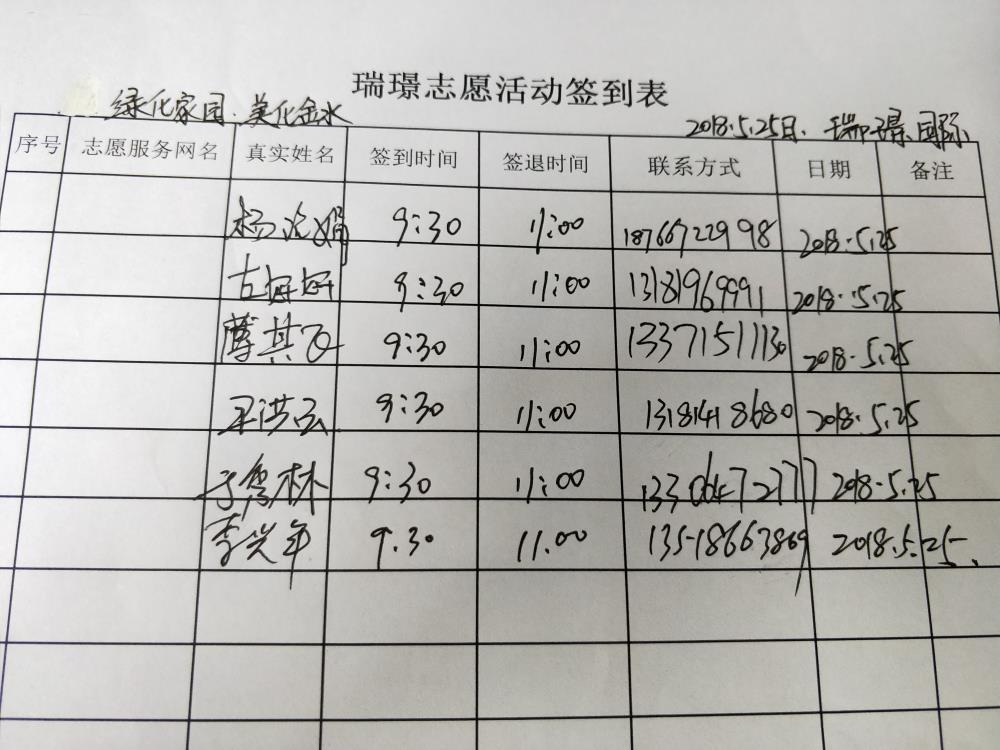 瑞璟志愿活动签到表
绿化家园.美化金水
2018.5.25日. 瑞璟国际
序号 志愿服务网名 真实姓名 签到时间 签退时间 联系方式 日期 备注
杨 娟 9:30 11:00 18766722998 2018.5.25
左婷婷 9:30 11:00 13181969991 2018.5.25
薄其飞 9:30 11:00 13371511130 2018.5.25
王洪云 9:30 11:00 13181418680 2018.5.25
于秀林 9:30 11:00 13306472777 2018.5.25
李兴年 9.30 11.00 13518663869 2018.5.25.